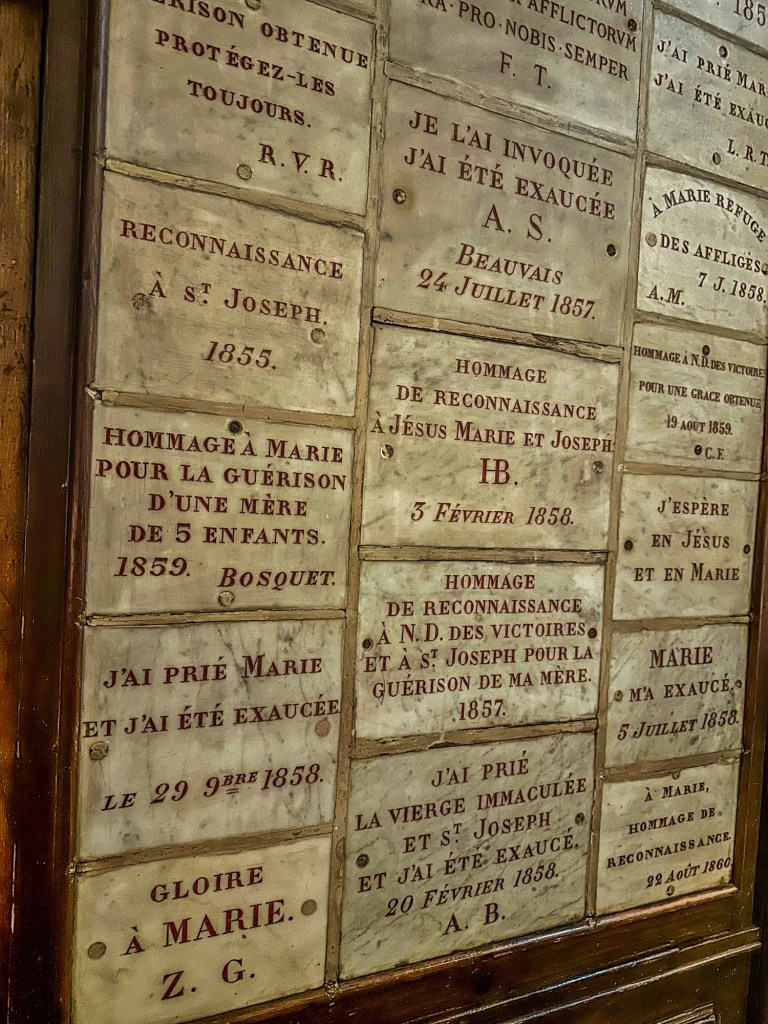 GUÉRISON OBTENUE
PROTÉGEZ-LES
TOUJOURS.
R. V. R.
RECONNAISSANCE
À ST JOSEPH.
1855.
HOMMAGE À MARIE
POUR LA GUÉRISON
D'UNE MÈRE
DE 5 ENFANTS.
1859. BOSQUET.
J'AI PRIÉ MARIE
ET J'AI ÉTÉ EXAUCÉE
LE 29 9BRE 1858.
GLOIRE
À MARIE.
Z. G.
AFFLICTORVM
PRO·NOBIS·SEMPER
F. T.
JE L'AI INVOQUÉE
J'AI ÉTÉ EXAUCÉE
A. S.
BEAUVAIS
24 JUILLET 1857.
HOMMAGE
DE RECONNAISSANCE
À JÉSUS MARIE ET JOSEPH
HB.
3 FÉVRIER 1858.
HOMMAGE
DE RECONNAISSANCE
À N.D. DES VICTOIRES
ET À ST JOSEPH POUR LA
GUÉRISON DE MA MÈRE.
1857.
J'AI PRIÉ
LA VIERGE IMMACULÉE
ET ST JOSEPH
ET J'AI ÉTÉ EXAUCÉ.
20 FÉVRIER 1858.
A. B.
J'AI PRIÉ
J'AI ÉTÉ
L. R.
À MARIE REFUGE
DES AFFLIGÉS
7 J. 1858.
A.M.
HOMMAGE À N.D. DES VICTOIRES
POUR UNE GRACE OBTENUE
19 AOUT 1859.
C.F.
J'ESPÈRE
EN JÉSUS
ET EN MARIE
MARIE
M'A EXAUCÉ.
5 JUILLET 1858.
À MARIE,
HOMMAGE DE
RECONNAISSANCE.
22 AOÛT 1860.